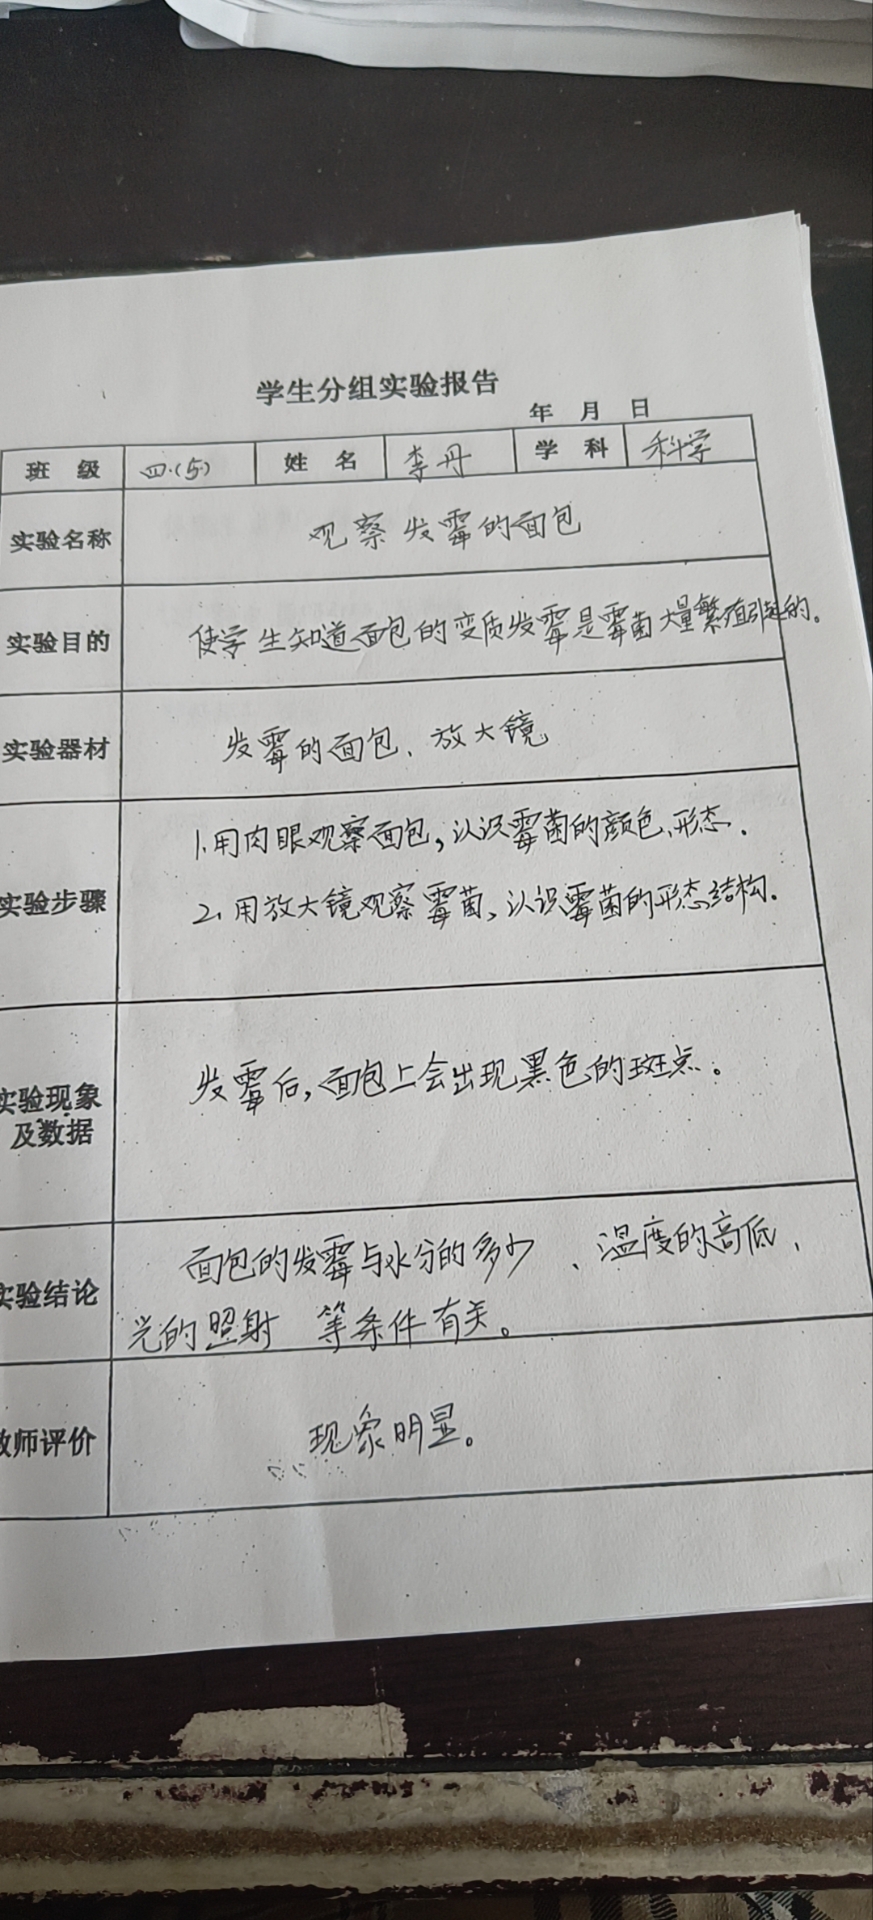 学生分组实验报告
年 月 日
班 级 四.(5) 姓 名 李丹 学 科 科学
实验名称 观察发霉的面包
实验目的 使学生知道面包的变质发霉是霉菌大量繁殖引起的。
实验器材 发霉的面包、放大镜
实验步骤 1.用肉眼观察面包,认识霉菌的颜色、形态.
2.用放大镜观察霉菌,认识霉菌的形态结构.
实验现象
及数据
发霉后,面包上会出现黑色的斑点。
实验结论 面包的发霉与水分的多少、温度的高低、
光的照射 等条件有关。
教师评价 现象明显。